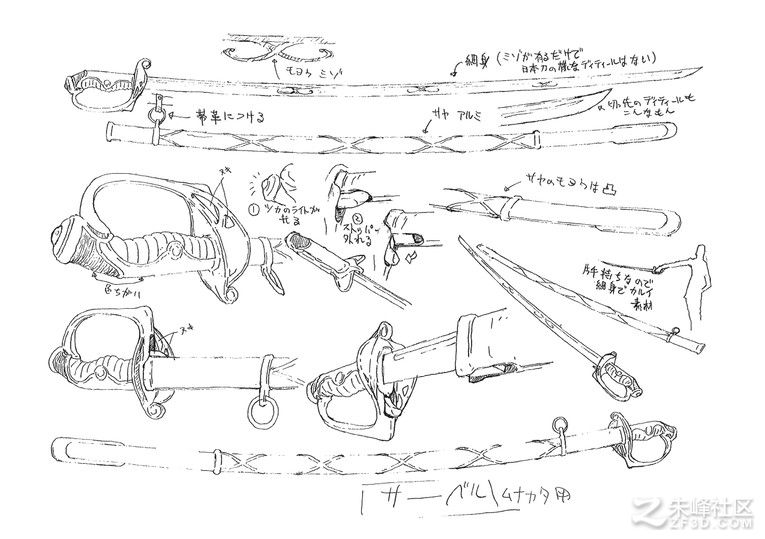 モヨウ ミゾ
細身 (ミゾが有るだけで
日本刀の様なディティールはない)
切っ先のディティールも
こんなもん
帯革につける
サヤ アルミ
ヌキ
サヤのモヨウは凸
① ツカのライトが
②
ストッパー
外れる
片手持ちなので
細身でカルイ
素材
ヌキ
サーベル ムナカタ用
朱峰社区
ZF3D.COM